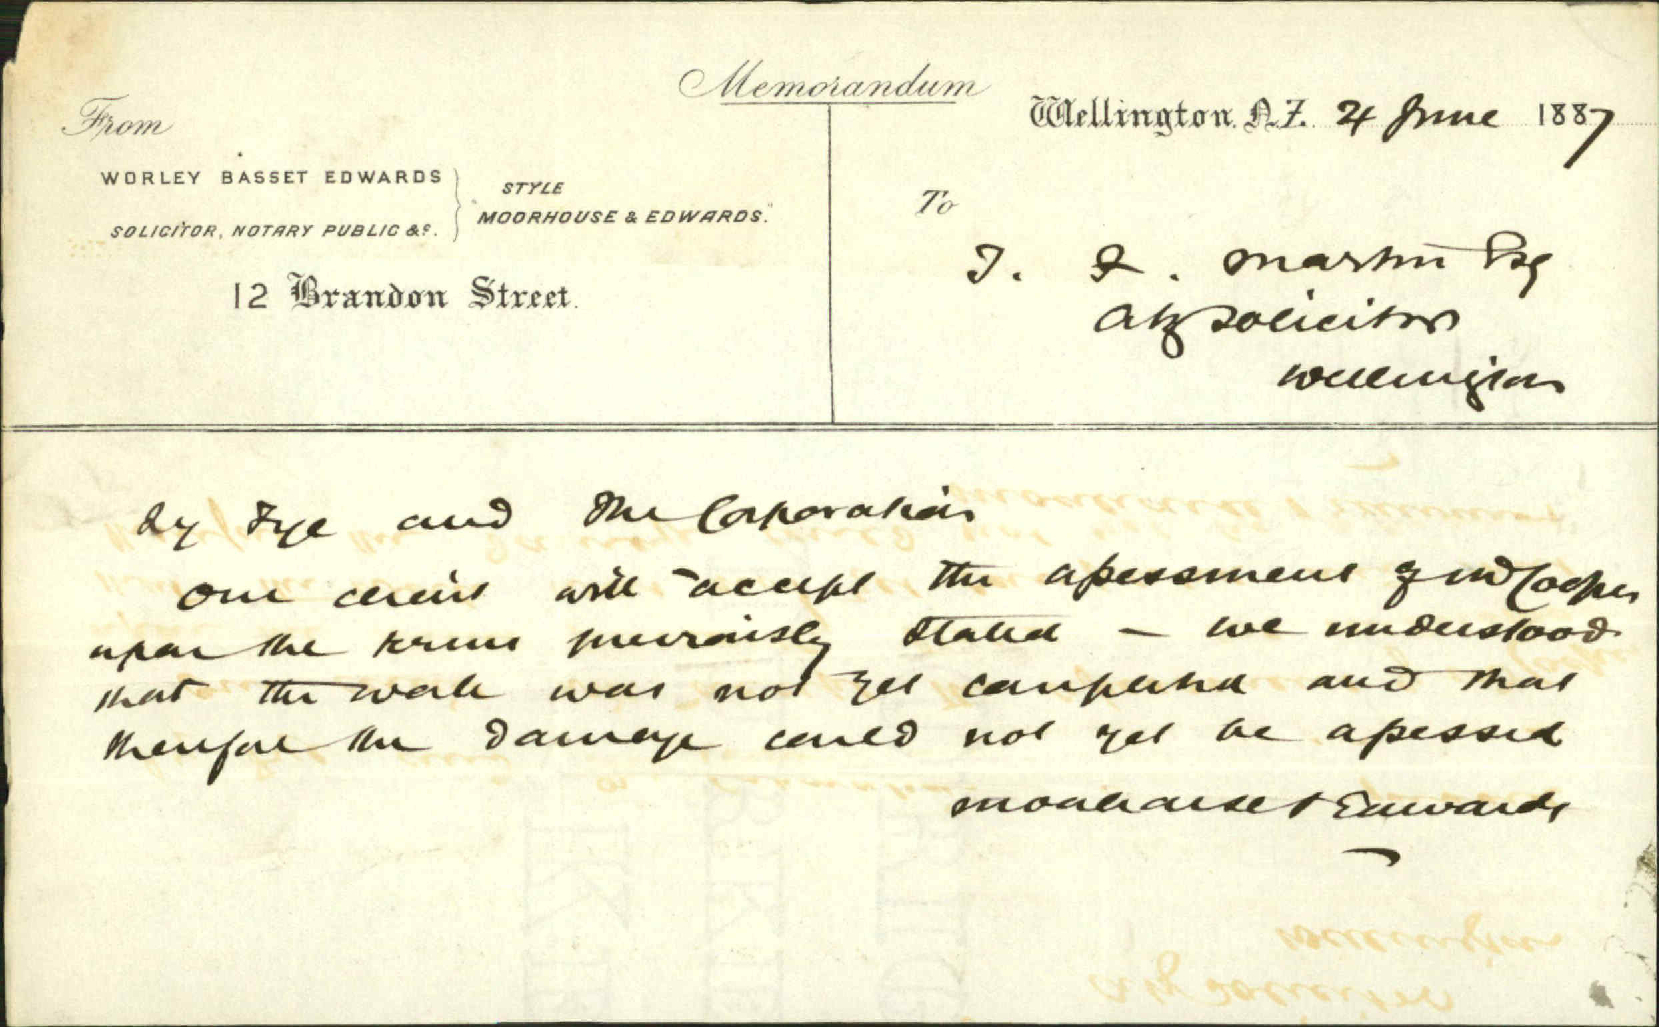 Memorandum
From
WORLEY BASSET EDWARDS
SOLICITOR, NOTARY PUBLIC &c.
STYLE
"MOORHOUSE & EDWARDS."
12 Brandon Street.
Wellington, N.Z. 24 June 1887
To
T. F. Martin Esq
City Solicitor
Wellington
Fye and The Corporation
Our client will accept the assessment of Mr Cooper
upon the terms previously stated – we understood
that the work was not yet completed and that
therefore the damage could not yet be assessed
Moorhouse & Edwards